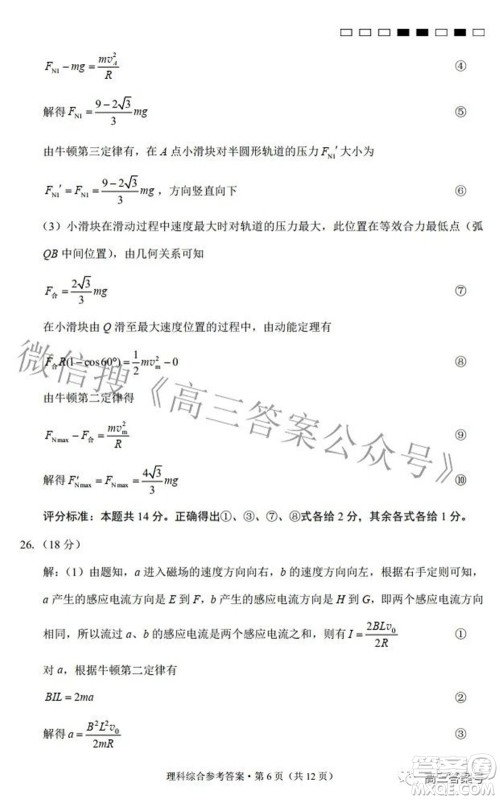 F_N1 − mg = mv_A²/R ④
解得 F_N1 = (9−2√3)/3 mg ⑤
由牛顿第三定律有，在 A 点小滑块对半圆形轨道的压力 F_N1′ 大小为
F_N1′ = F_N1 = (9−2√3)/3 mg，方向竖直向下 ⑥
（3）小滑块在滑动过程中速度最大时对轨道的压力最大，此位置在等效合力最低点（弧
QB 中间位置），由几何关系可知
F_合 = 2√3/3 mg ⑦
在小滑块由 Q 滑至最大速度位置的过程中，由动能定理有
F_合R(1−cos60°) = 1/2 mv_m² − 0 ⑧
由牛顿第二定律得
F_Nmax − F_合 = mv_m²/R ⑨
解得 F′_Nmax = F_Nmax = 4√3/3 mg ⑩
评分标准：本题共 14 分。正确得出①、③、⑦、⑧式各给 2 分，其余各式各给 1 分。
26.（18 分）
解：（1）由题知，a 进入磁场的速度方向向右，b 的速度方向向左，根据右手定则可知，
a 产生的感应电流方向是 E 到 F，b 产生的感应电流方向是 H 到 G，即两个感应电流方向
相同，所以流过 a、b 的感应电流是两个感应电流之和，则有 I = 2BLv₀/2R ①
对 a，根据牛顿第二定律有
BIL = 2ma ②
a = B²L²v₀/2mR ③
理科综合参考答案·第 6 页（共 12 页）
微信搜《高三答案公众号》
高三答案号
答案圈
MXQE.COM